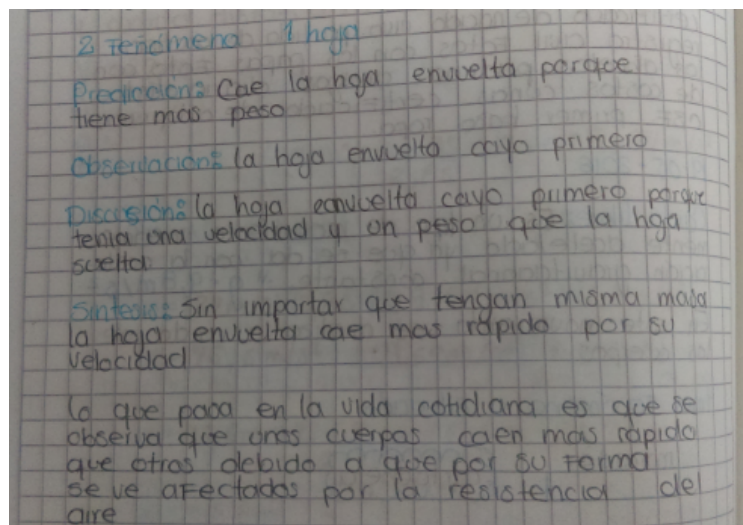 2 Fenómeno 1 hoja
Predicción: Cae la hoja envuelta porque
tiene más peso
Observación: la hoja envuelta cayo primero
Discusión: la hoja eanvuelta cayo primero porque
tenia una velocidad y un peso que la hga
suelta
Síntesis: Sin importar que tengan misma masa
la hoja envuelta cae mas rápido por su
velocidad
lo que pasa en la vida cotidiana es que se
observa que unos cuerpos caen mas rápido
que otros debido a que por su forma
se ve afectados por la resistencia del
aire